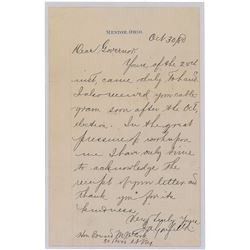 MENTOR, OHIO.
Oct 30/80
Dear Governor.
Yours of the 23rd
inst. came duly to hand
I also received your cable
gram soon after the Oct
election. In the great
pressure of work upon
me I have only time
to acknowledge the
receipt of your letter and
thank you for its
kindness.
Very Truly Yours
J A Garfield
Hon